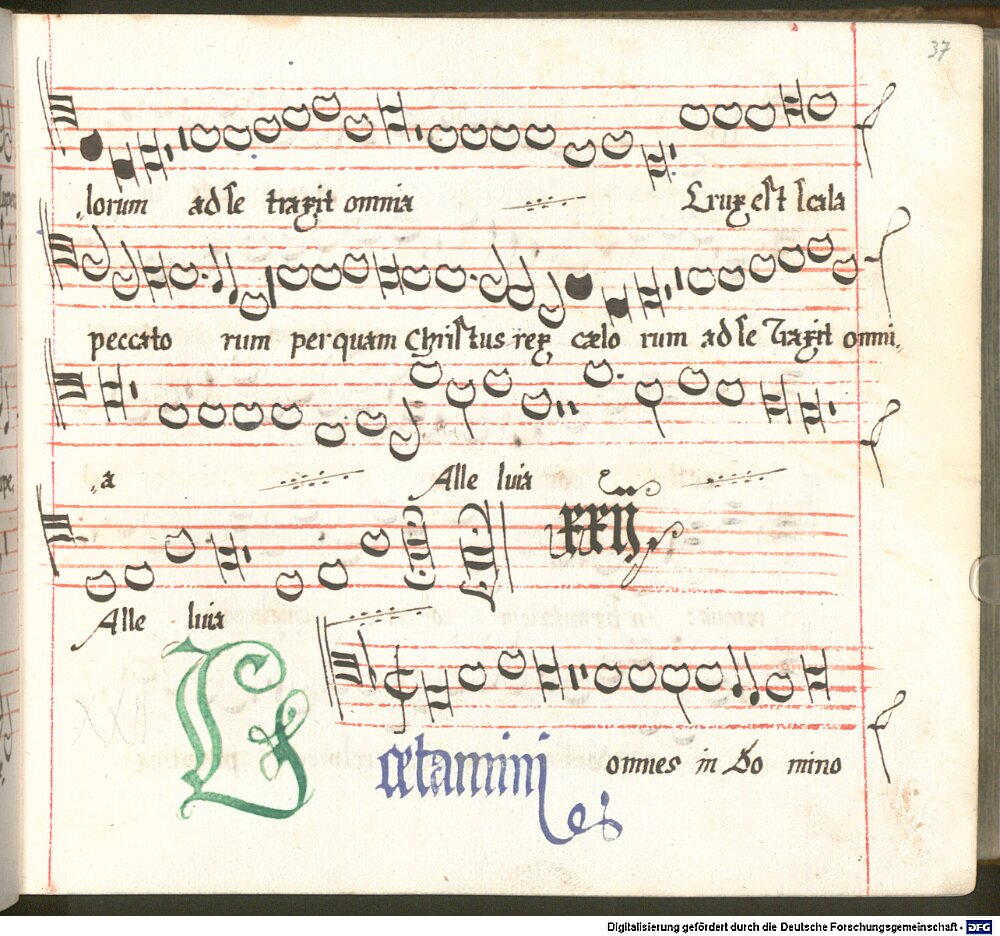 37
lorum ad se traxit omnia Crux est scala
peccato rum per quam Christus rex cælo rum ad se Traxit omni
a Alle luia
xxij
Alle luia
Lætamini omnes in Do mino
Digitalisierung gefördert durch die Deutsche Forschungsgemeinschaft - DFG